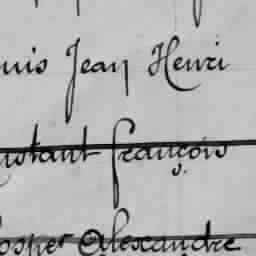 uis Jean Henri
nstant françois
osper Alexandre